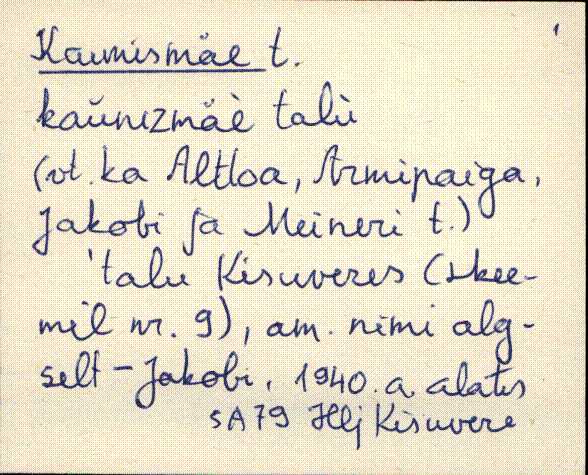 Kaunismäe t.
kaùnɪzmäè talù
(vt. ka Altloa, Armipaiga,
Jakobi ja Meineri t.)
'talu Kisuveres (skee-
mil nr. 9), am. nimi alg-
selt - Jakobi, 1940. a. alates
SA79 Hlj Kisuvere